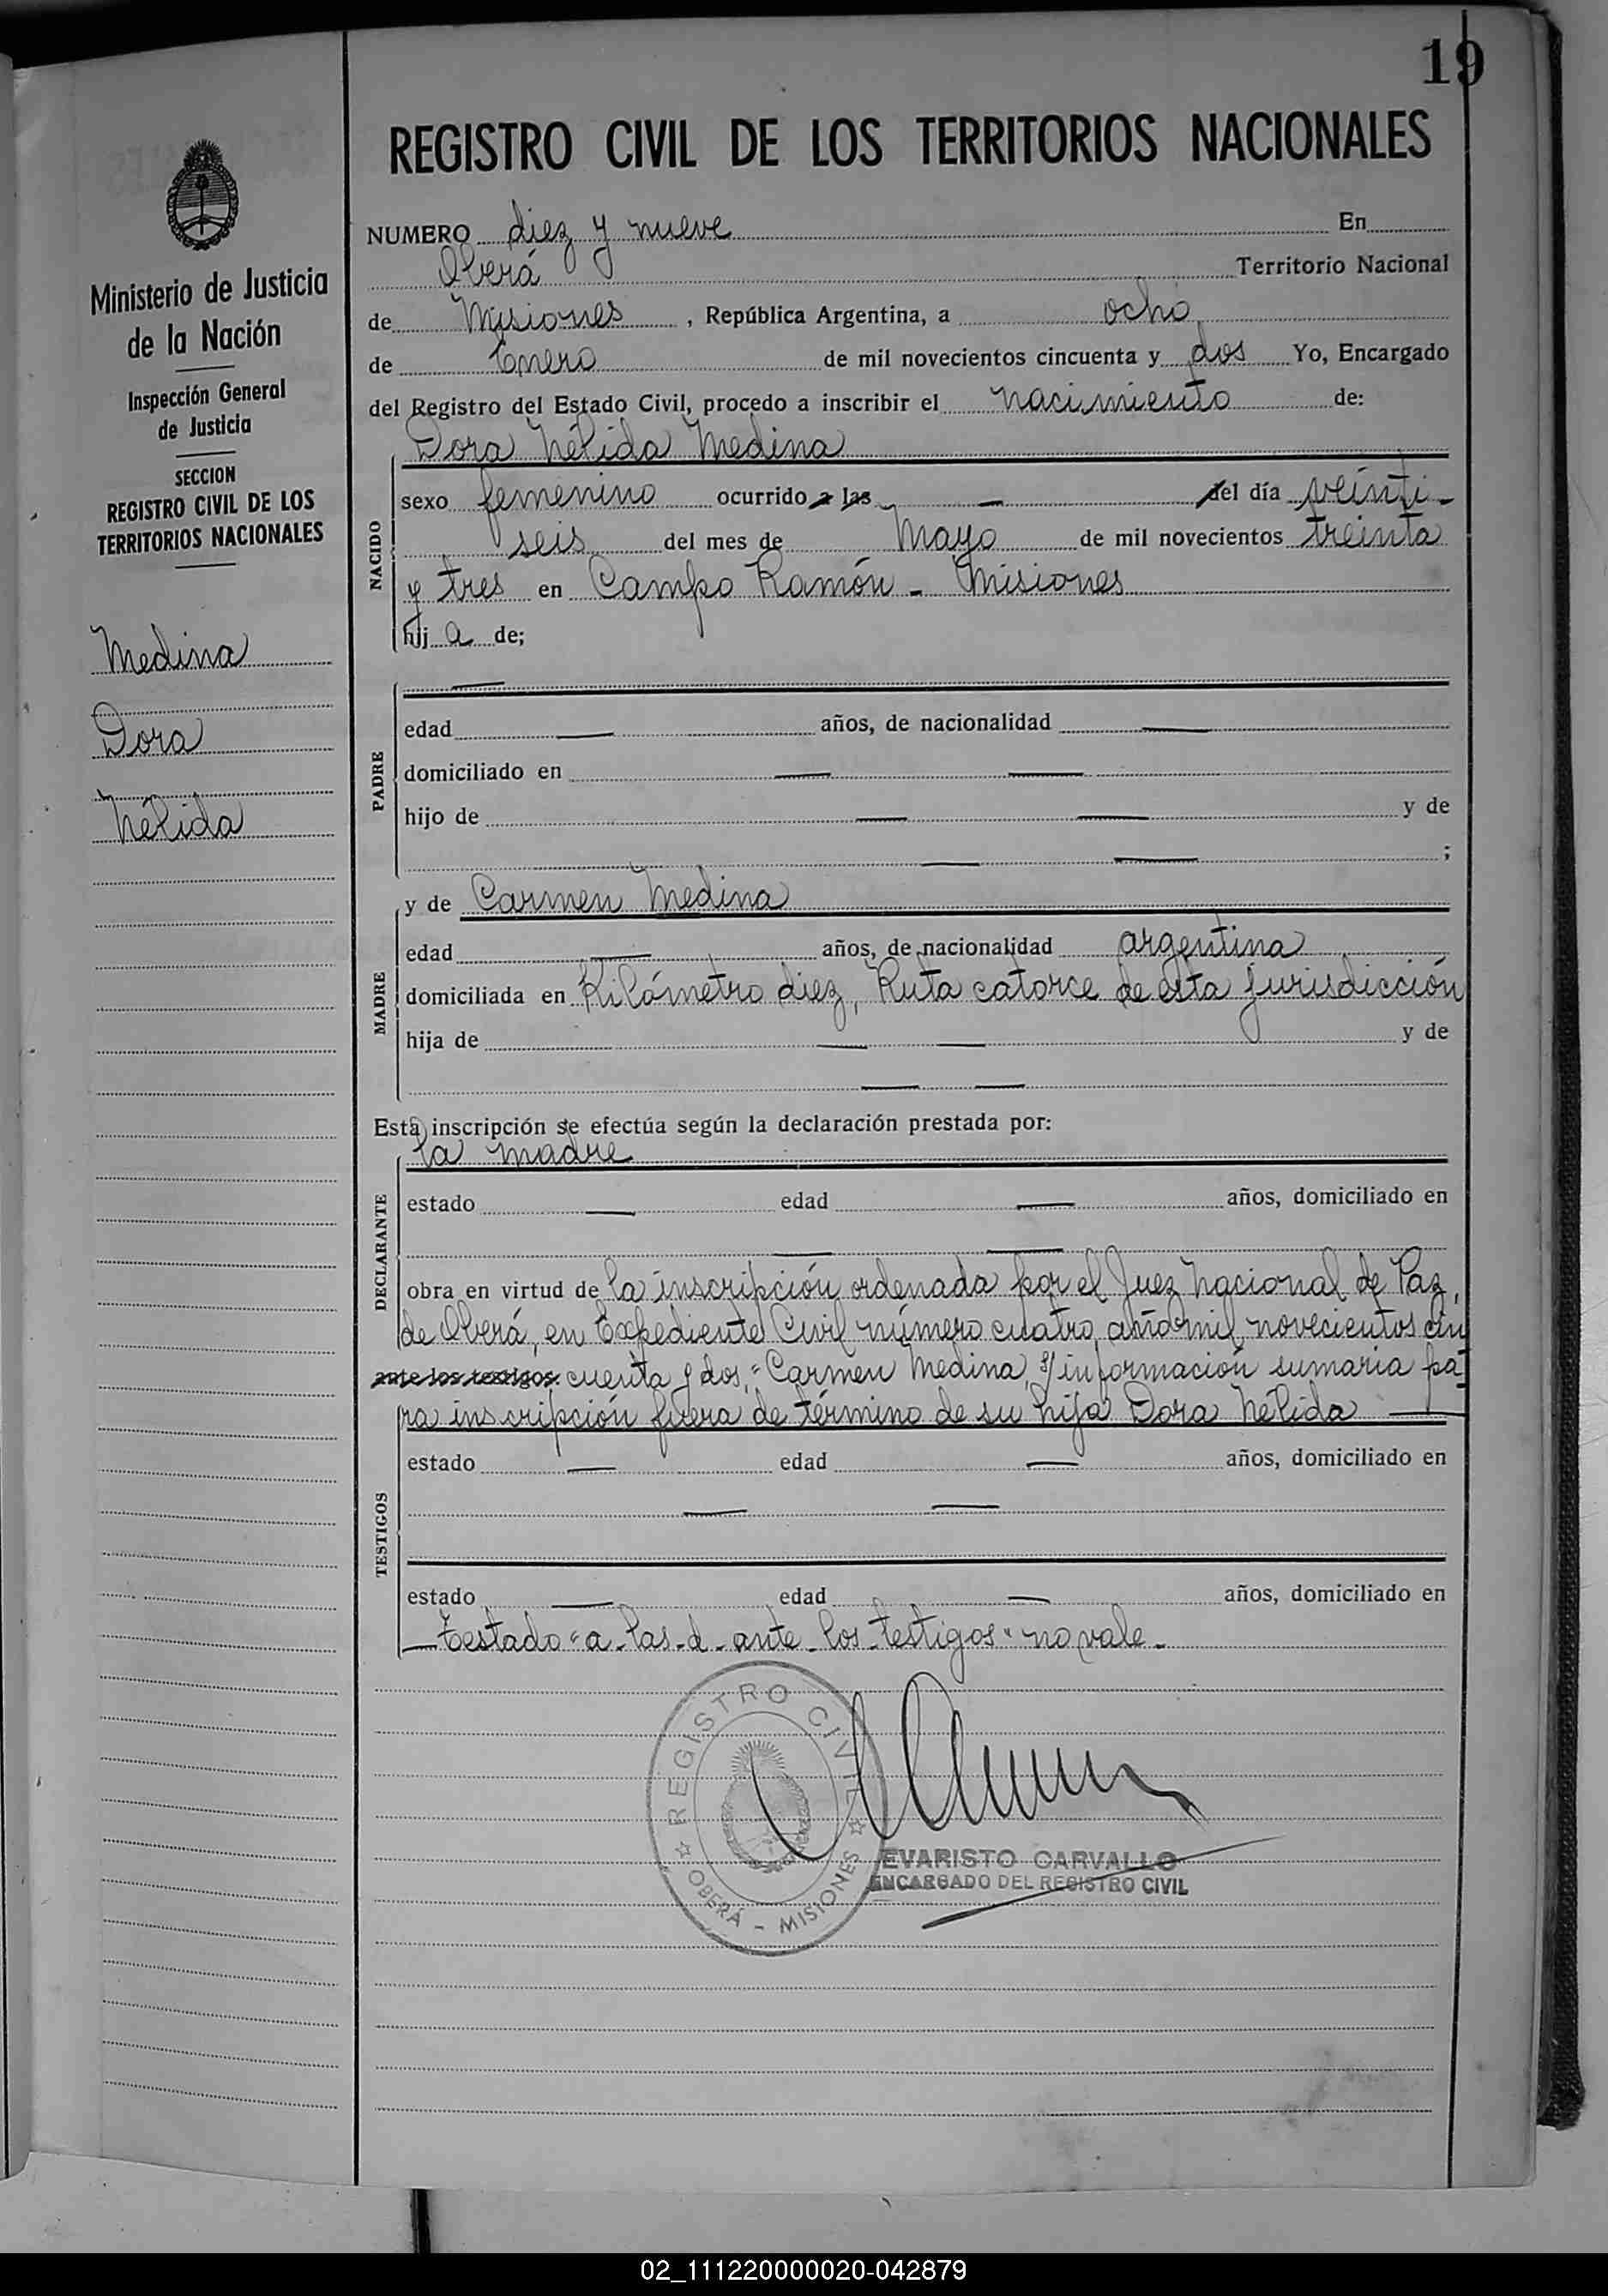 19
REGISTRO CIVIL DE LOS TERRITORIOS NACIONALES
Ministerio de Justicia
de la Nación
Inspección General
de Justicia
SECCION
REGISTRO CIVIL DE LOS
TERRITORIOS NACIONALES
Medina
Dora
Nélida
NUMERO diez y nueve En
Oberá Territorio Nacional
de Misiones, República Argentina, a ocho
de Enero de mil novecientos cincuenta y dos Yo, Encargado
del Registro del Estado Civil, procedo a inscribir el nacimiento de:
Dora Nélida Medina
NACIDO
sexo femenino ocurrido a las — del día veinti-
seis del mes de Mayo de mil novecientos treinta
y tres en Campo Ramón - Misiones
hij a de;
PADRE
—
edad — años, de nacionalidad —
domiciliado en — —
hijo de — — y de
— — ;
MADRE
y de Carmen Medina
edad — años, de nacionalidad argentina
domiciliada en Kilómetro diez, Ruta catorce de esta jurisdicción
hija de — — y de
— —
Esta inscripción se efectúa según la declaración prestada por:
DECLARANTE
la madre
estado — edad — años, domiciliado en
— —
obra en virtud de la inscripción ordenada por el Juez Nacional de Paz,
de Oberá, en Expediente Civil número cuatro, año mil novecientos cin
ante los testigos: cuenta y dos, "Carmen Medina, s/ información sumaria pa
ra inscripción fuera de término de su hija Dora Nélida —
TESTIGOS
estado — edad — años, domiciliado en
— —
estado — edad — años, domiciliado en
— Testado "a - las - d - ante - los - testigos" no vale -
REGISTRO CIVIL
OBERÁ - MISIONES
EVARISTO CARVALLO
ENCARGADO DEL REGISTRO CIVIL
02_111220000020-042879